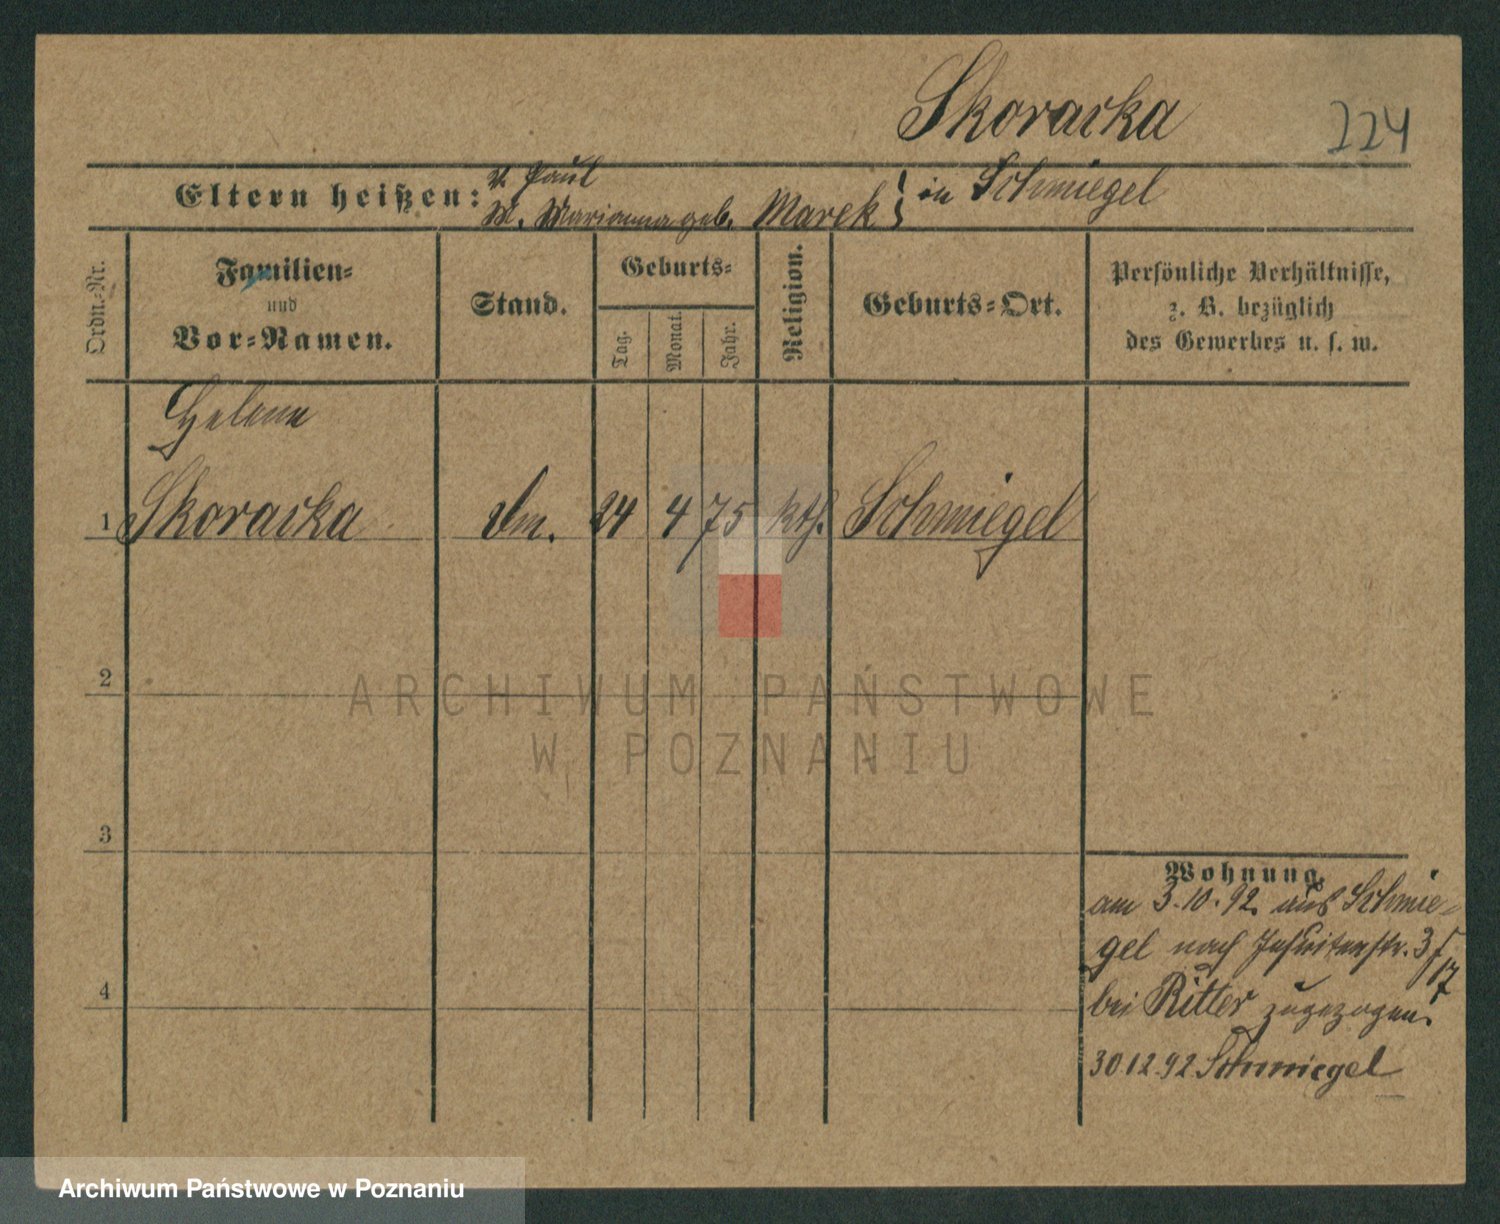 Skoracka
224
Eltern heißen:
V. Paul
M. Marianna geb. Marek } in Schmiegel
Ordn.-Nr.
Familien-
und
Vor-Namen.
Stand.
Geburts-
Tag.
Monat.
Jahr.
Religion.
Geburts-Ort.
Persönliche Verhältnisse,
z. B. bezüglich
des Gewerbes u. s. w.
Helene
1 Skoracka 24 4 75 kth. Schmiegel
2
3
4
Wohnung.
am 3.10.92. aus Schmie-
gel nach Jesuitenstr. 3
17
bei Ritter zugezogen.
30.12.92 Schmiegel
ARCHIWUM PAŃSTWOWE
W POZNANIU
Archiwum Państwowe w Poznaniu